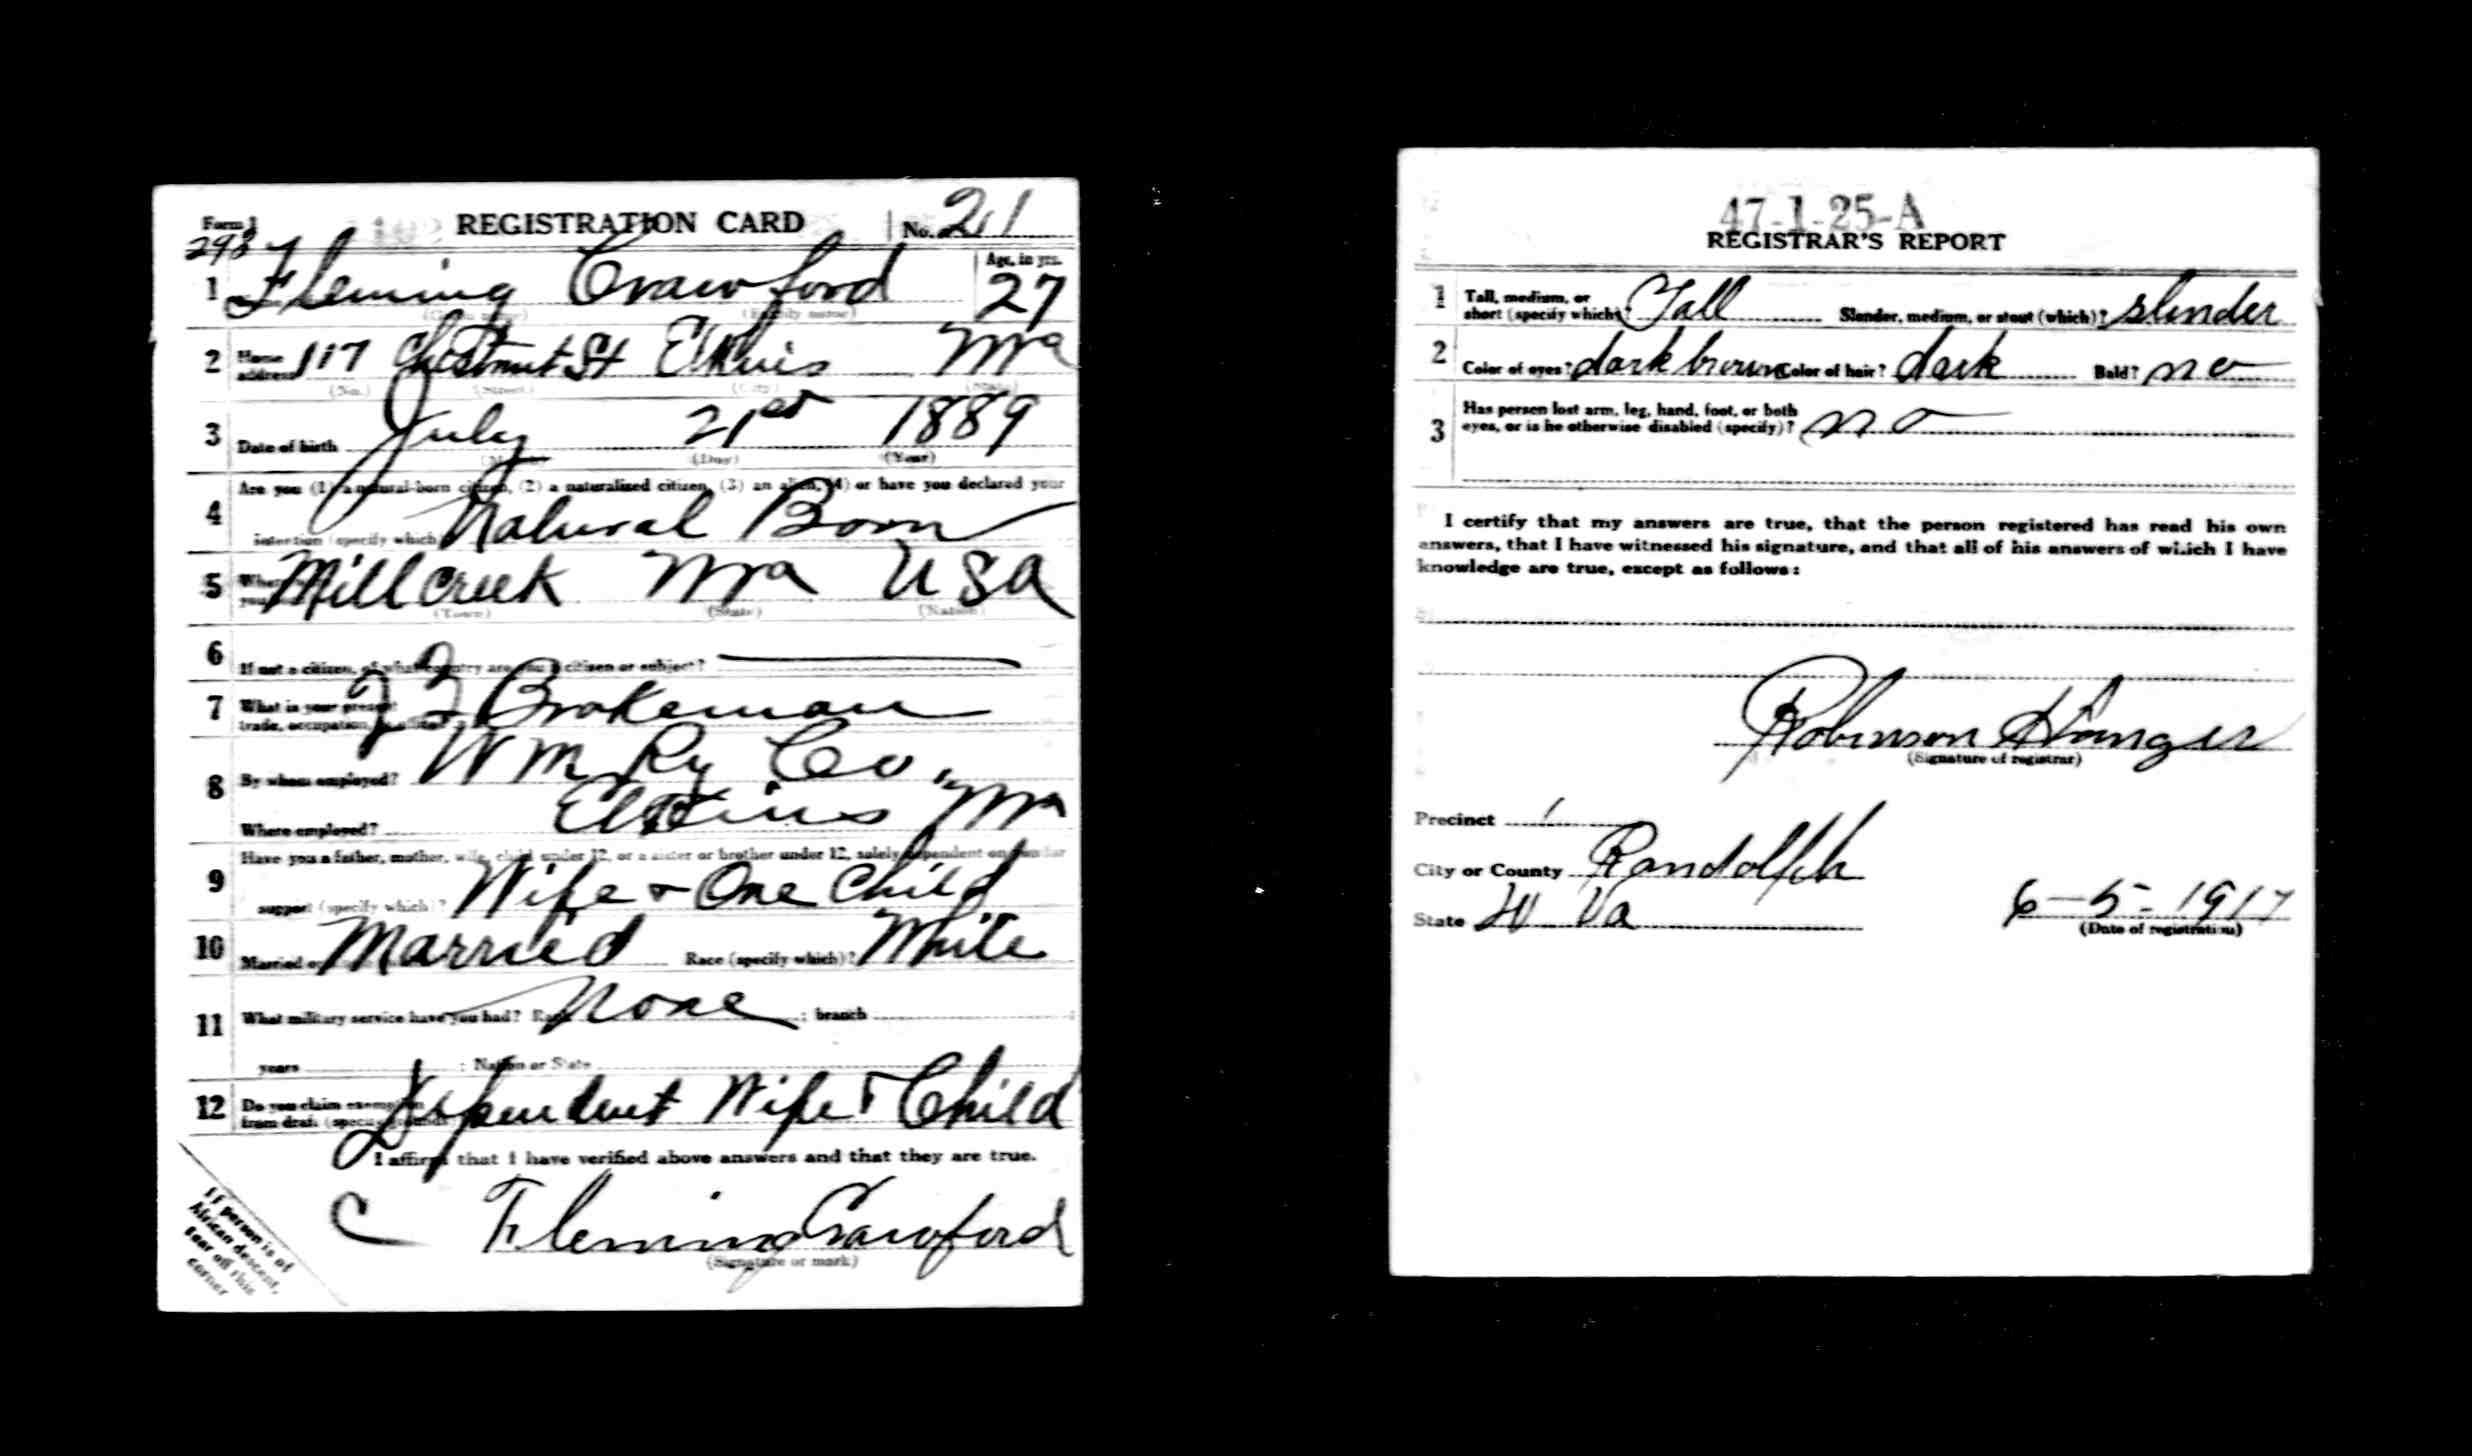 Form 1 REGISTRATION CARD No. 21
298
1 Fleming Crawford Age, in yrs. 27
(Given name) (Family name)
2 Home address 117 Chestnut St Elkins WVa
(No.) (Street) (City) (State)
3 Date of birth July 21st 1889
(Month) (Day) (Year)
Are you (1) a natural-born citizen, (2) a naturalized citizen, (3) an alien, (4) or have you declared your
4 intention (specify which) Natural Born
5 Where you Mill Creek WVa USA
(Town) (State) (Nation)
6 If not a citizen, of what country are you a citizen or subject?
7 What is your present trade, occupation, Brakeman
8 By whom employed? W M Ry Co.
Where employed? Elkins WVa
Have you a father, mother, wife, child under 12, or a sister or brother under 12, solely dependent on you for
9 support (specify which)? Wife & One Child
10 Married or Married Race (specify which)? White
11 What military service have you had? Rank None ; branch
years ; Nation or State
12 Do you claim exemption from draft (specify grounds) Dependent Wife & Child
I affirm that I have verified above answers and that they are true.
C Fleming Crawford
(Signature or mark)
If person is of
African descent,
tear off this
corner
47-1-25-A
REGISTRAR'S REPORT
1 Tall, medium, or short (specify which)? Tall Slender, medium, or stout (which)? slender
2 Color of eyes? dark brown Color of hair? dark Bald? no
3 Has person lost arm, leg, hand, foot, or both
eyes, or is he otherwise disabled (specify)? no
I certify that my answers are true, that the person registered has read his own
answers, that I have witnessed his signature, and that all of his answers of which I have
knowledge are true, except as follows:
Robinson Hanger
(Signature of registrar)
Precinct 1
City or County Randolph
State W Va 6-5-1917
(Date of registration)